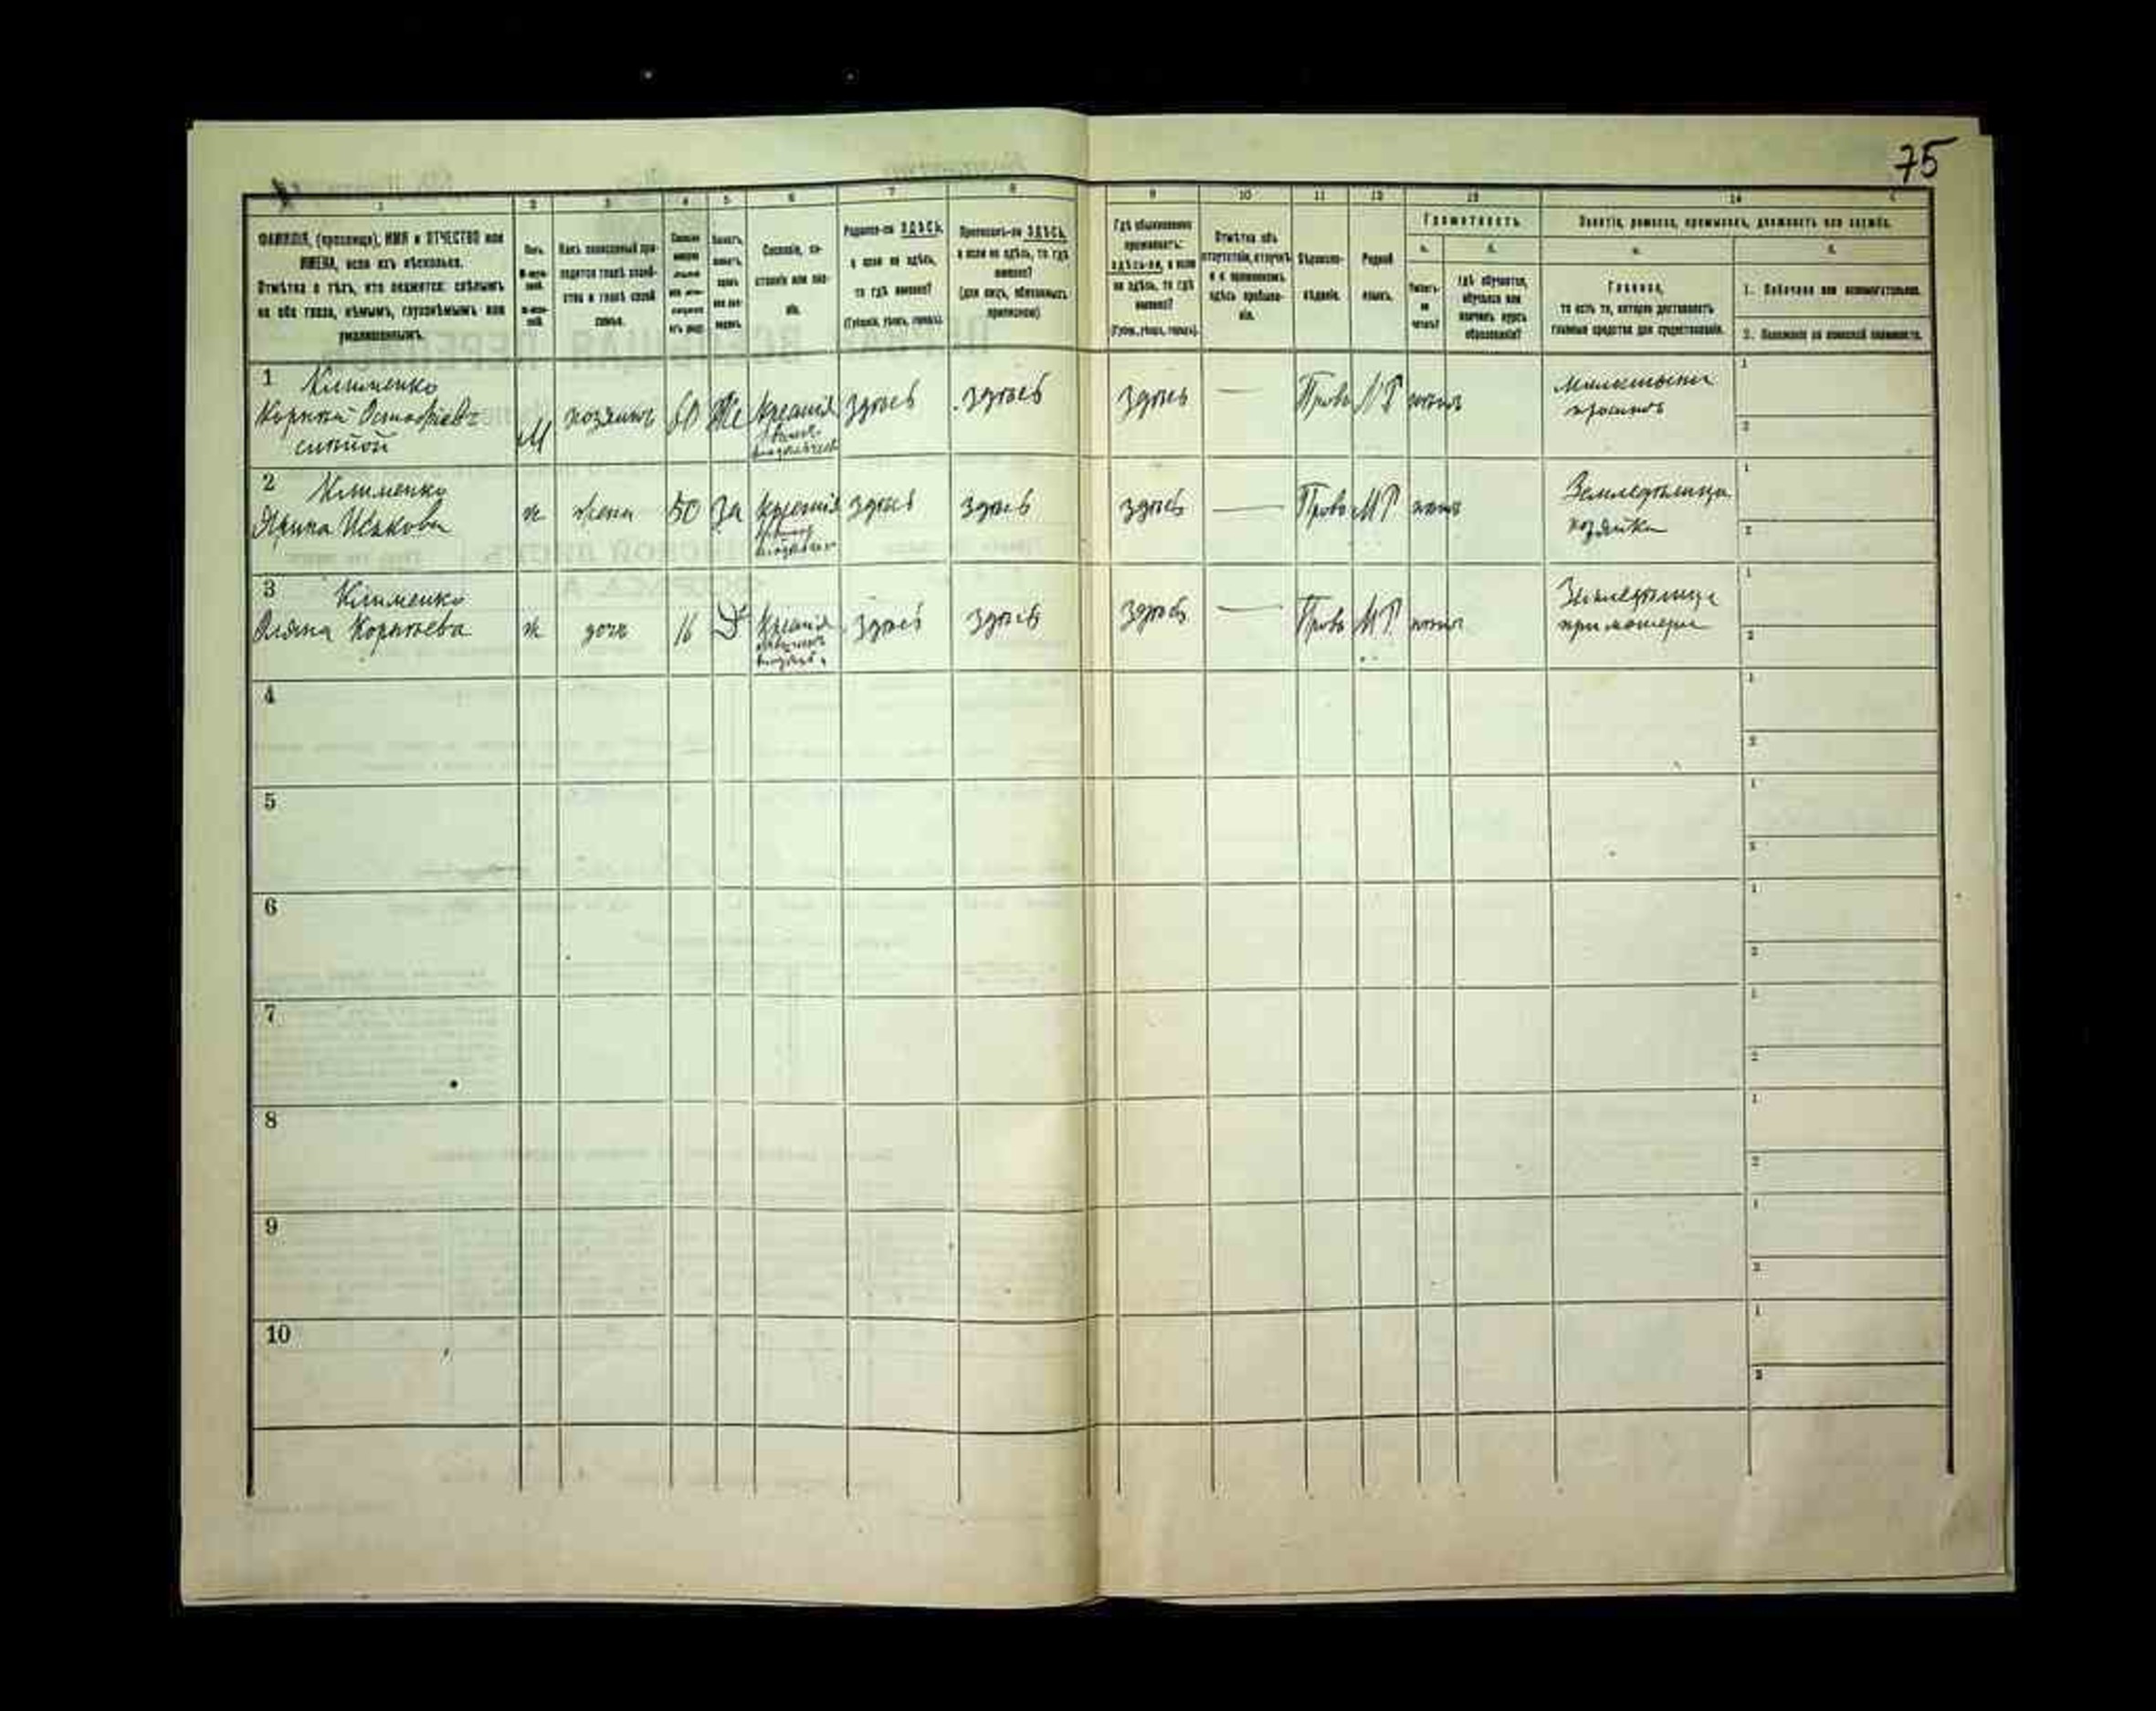 75
1 2 3 4 5 6 7 8 9 10 11 12 13 14
ФАМИЛІЯ, (прозвище), ИМЯ и ОТЧЕСТВО или
ИМЕНА, если ихъ нѣсколько.
Отмѣтка о тѣхъ, кто окажется: слѣпымъ
на оба глаза, нѣмымъ, глухонѣмымъ или
умалишеннымъ.
Полъ.
Какъ записанный при-
ходится главѣ хозяй-
ства и главѣ своей
семьи.
Сословіе, со-
стояніе или зва-
ніе.
Родился-ли ЗДѢСЬ,
а если не здѣсь,
то гдѣ именно?
(Губернія, уѣздъ, городъ).
Приписанъ-ли ЗДѢСЬ,
а если не здѣсь, то гдѣ
именно?
(для лицъ, обязанныхъ
припиской)
Гдѣ обыкновенно
проживаетъ:
здѣсь-ли, а если
не здѣсь, то гдѣ
именно?
(Губер., уѣздъ, городъ).
Отмѣтка объ
отсутствіи, отлучкѣ
и о временномъ
здѣсь пребыва-
ніи.
Вѣроиспо-
вѣданіе.
Родной
языкъ.
Грамотность.
а. б.
Умѣетъ-
ли
читать?
гдѣ обучается,
обучался или
кончилъ курсъ
образованія?
Занятіе, ремесло, промыселъ, должность или служба.
а. б.
Главное,
то есть то, которое доставляетъ
главныя средства для существованія.
1. Побочное или вспомогательное.
2. Положеніе по воинской повинности.
1 Клименко
Корній Остафіевъ
слѣпой
М хозяинъ 60 Же здѣсь здѣсь здѣсь — Право МР нѣтъ
Милостыни
проситъ
2 Клименко
Ярина Исакова
ж жена 50 За здѣсь здѣсь здѣсь — Право МР нѣтъ
Земледѣлица
хозяйка
3 Клименко
Оляна Корніева
ж дочь 16 Д здѣсь здѣсь здѣсь — Право МР нѣтъ
Земледѣлица
при матери
4
5
6
7
8
9
10